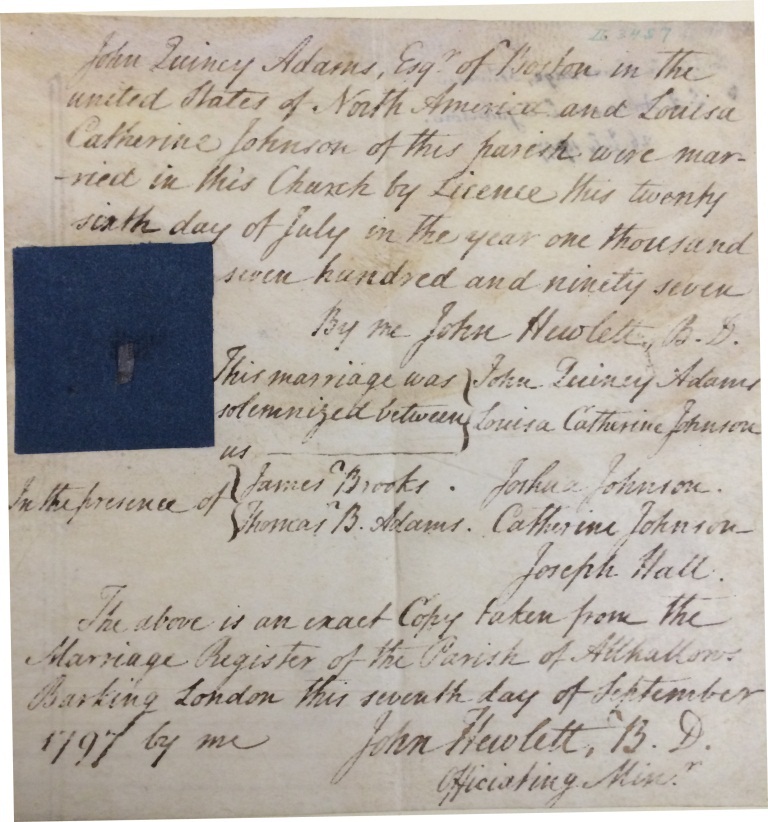 John Quincy Adams, Esqr. of Boston in the
united States of North America and Louisa
Catherine Johnson of this parish were mar-
-ried in this Church by Licence this twenty
sixth day of July in the year one thousand
seven hundred and ninety seven
By me John Hewlett, B. D.
This marriage was } John Quincy Adams
solemnized between } Louisa Catherine Johnson
us
In the presence of { James Brooks. Joshua Johnson.
Thomas B. Adams. Catherine Johnson
Joseph Hall.
The above is an exact Copy taken from the
Marriage Register of the Parish of Allhallows
Barking London this seventh day of September
1797 by me John Hewlett, B. D.
Officiating Minr.